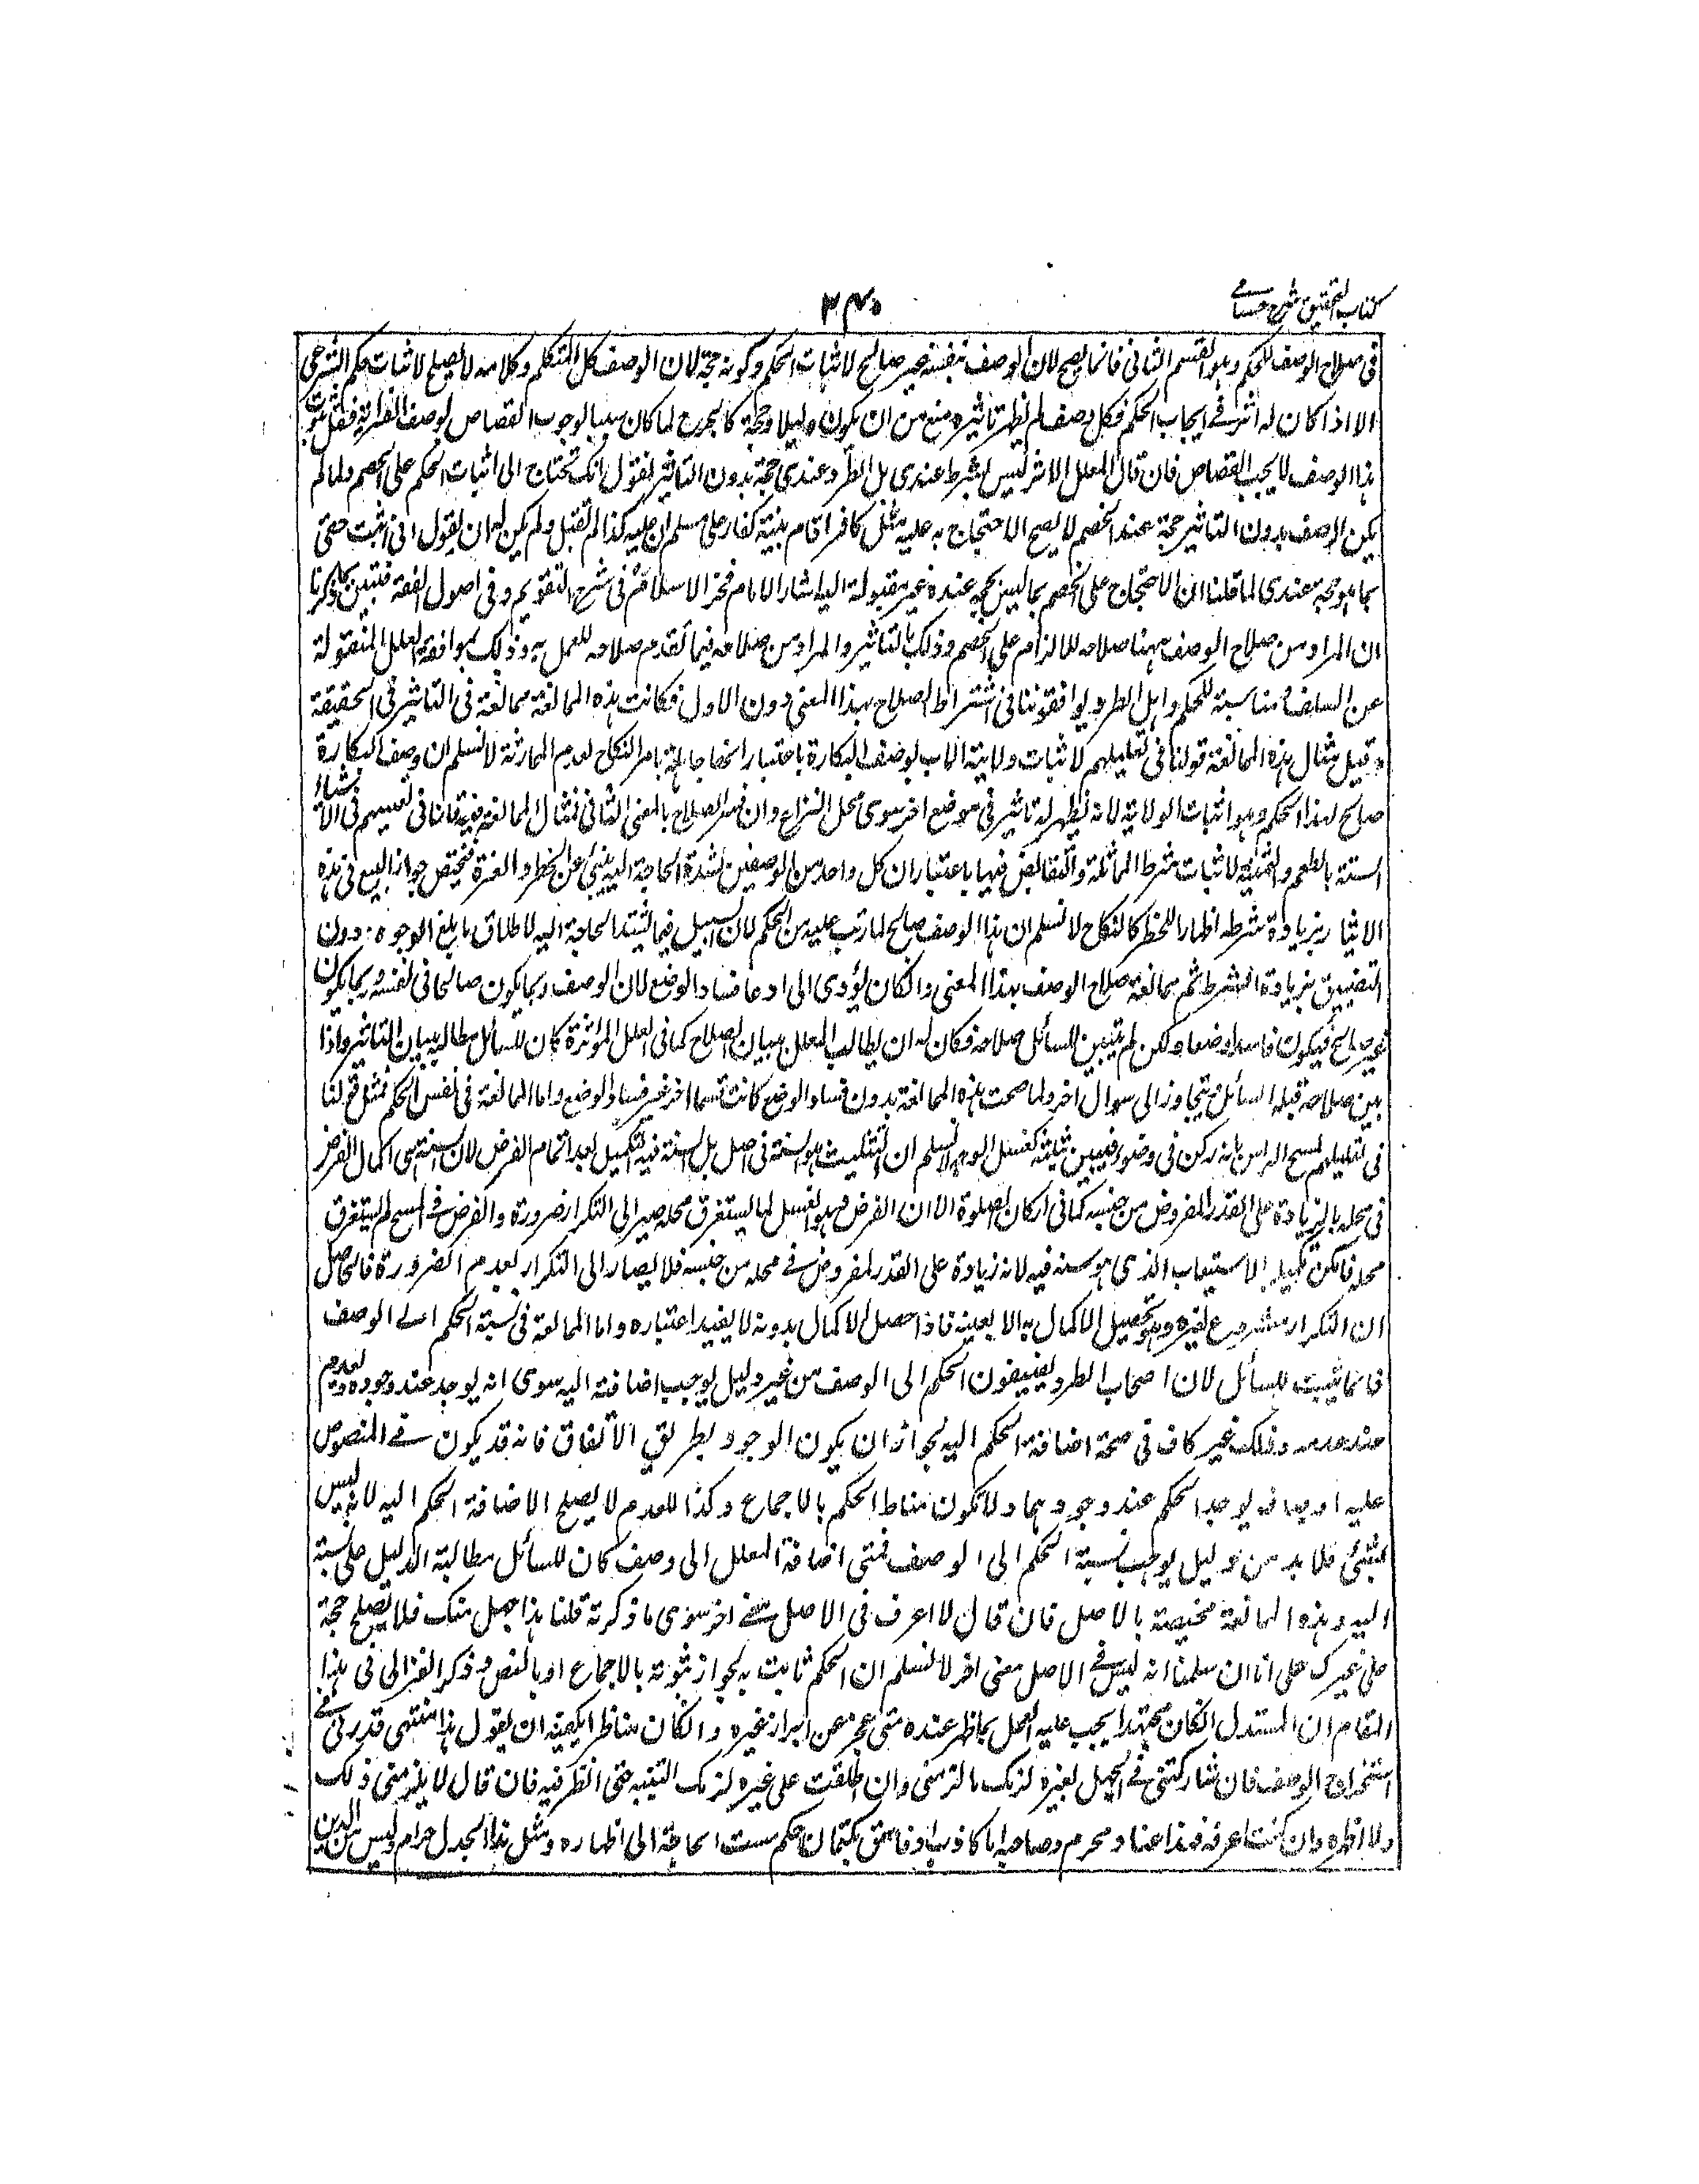 كتاب التحقيق شرح حسامى
٣٤٠
فى صلاح الوصف للحكم وهو القسم الثانى فانما يصح لان الوصف بنفسه غير صالح لاثبات الحكم وكونه حجة لان الوصف كل المتكلم وكلامه لا يصلح لاثبات حكم الشرعى
الا اذا كان له اثر فى ايجاب الحكم فكل وصف لم يظهر تاثيره منع من ان يكون دليلا وحجة كالجرح لما كان سببا لوجوب القصاص لوصف السراية فقبل ثبوت
هذا الوصف لا يجب القصاص فان قال المعلل الاثر ليس بشرط عندى بل الطرد عندى حجة بدون التاثير فنقول انك تحتاج الى اثبات الحكم على الخصم ولما لم
يكن الوصف بدون التاثير حجة عند الخصم لا يصح الاحتجاج به عليه مثل كافر اقام بينة كفار على مسلم ان عليه كذا لم تقبل ولم يكن له ان يقول انى اثبت حقى
بما هو حجة عندى لما قلنا ان الاحتجاج على الخصم بما ليس بحجة عنده غير مقبولة اليه اشار الامام فخر الاسلام فى شرح التقويم وفى اصول الفقه فتبين بما ذكرنا
ان المراد من صلاح الوصف ههنا صلاحه للالزام على الخصم وذلك بالتاثير والمراد من صلاحه فيما تقدم صلاحه للعمل به وذلك بموافقة العلل المنقولة
عن السلف ومناسبة للحكم واهل الطرد يوافقوننا فى اشتراط الصلاح بهذا المعنى دون الاول فكانت هذه الممانعة ممانعة فى التاثير فى الحقيقة
وقيل مثال هذه الممانعة قولنا فى تعليلهم لاثبات ولاية الاب بوصف البكارة باعتبار انها جاهلة بامر النكاح لعدم الممارسة لا نسلم ان وصف البكارة
صالح لهذا الحكم وهو اثبات الولاية لانه لم يظهر له تاثير فى موضع اخر سوى محل النزاع وان فسر الصلاح بالمعنى الثانى فمثال الممانعة فيه قولنا فى تعليلهم فى الاشياء
الستة بالطعم والثمنية لاثبات شرط المماثلة والتقابض فيها باعتبار ان كل واحد من الوصفين لشدة الحاجة اليه ينبئ عن الخطر والعزة فيختص جواز البيع فى هذه
الاشياء بزيادة شرط اظهارا للخطر كالنكاح لا نسلم ان هذا الوصف صالح لما رتب عليه من الحكم لان السبيل فيما يشتد الحاجة اليه الاطلاق بابلغ الوجوه دون
التضييق بزيادة الشرط ثم ممانعة صلاح الوصف بهذا المعنى وان كان يؤدى الى ادعاء فساد الوضع لان الوصف ربما يكون صالحا فى نفسه وربما يكون
غير صالح فيكون فاسدا وضعا ولكن لم يتبين للسائل صلاحه فكان له ان يطالب المعلل ببيان الصلاح كما فى العلل المؤثرة كان للسائل مطالبة بيان التاثير واذا
بين صلاحه قبله السائل او يتجاوز الى سوال اخر ولما صحت هذه الممانعة بدون فساد الوضع كانت قسما اخر غير فساد الوضع واما الممانعة فى نفس الحكم فمثل قولنا
فى تعليلهم لمسح الراس بانه ركن فى وضوء فيسن تثليثه كغسل الوجه لا نسلم ان التثليث هو السنة فى الاصل بل السنة فيه التكميل بعد اتمام الفرض لان السنة هى اكمال الفرض
فى محله بالزيادة على القدر المفروض من جنسه كما فى اركان الصلوة الا ان الفرض وهو الغسل لما استغرق محله صير الى التكرار ضرورة والفرض فى المسح لم يستغرق
محله فامكن تكميله بالاستيعاب الذى هو سنة فيه لانه زيادة على القدر المفروض فى محله من جنسه فلا يصار الى التكرار لعدم الضرورة فالحاصل
ان التكرار مشروع لغيره وهو تحصيل الاكمال به لا لعينه فاذا حصل الاكمال بدونه لا يفيد اعتباره واما الممانعة فى نسبة الحكم الى الوصف
فانما يثبت للسائل لان اصحاب الطرد يضيفون الحكم الى الوصف من غير دليل يوجب اضافته اليه سوى انه يوجد عند وجوده ويعدم
عند عدمه وذلك غير كاف فى صحة اضافة الحكم اليه لجواز ان يكون الوجود بطريق الاتفاق فانه قد يكون فى المنصوص
عليه اوصاف يوجد الحكم عند وجودها ولا تكون مناط الحكم بالاجماع وكذا العدم لا يصلح الاضافة الحكم اليه لانه ليس
بشئ فلا بد من دليل يوجب نسبة الحكم الى الوصف فمتى اضافة المعلل الى وصف كان للسائل مطالبة الدليل على نسبة
اليه وهذه الممانعة مختصة بالاصل فان قال لا اعرف فى الاصل معنى اخر سوى ما ذكرته قلنا هذا جهل منك فلا يصلح حجة
على غيرك على انا ان سلمنا انه ليس فى الاصل معنى اخر لا نسلم ان الحكم ثابت به لجواز ثبوته بالاجماع او بالنص وذكر الغزالى فى هذا
المقام ان المستدل ان كان مجتهدا يجب عليه العمل بما ظهر عنده متى عجز عن ابراز غيره وان كان مناظرا يكفيه ان يقول هذا منتهى قدرتى فى
استخراج الوصف فان شاركتنى فى الجهل بغيره لزمك ما لزمنى وان اطلعت على غيره لزمك التنبيه حتى انظر فيه فان قال لا يلزمنى ذلك
ولا اظهره وان كنت اعرفه فهذا عناد محرم وصاحبه اما كاذب او فاسق بكتمان حكم مست الحاجة الى اظهاره ومثل هذا الجدل حرام وليس من الدين